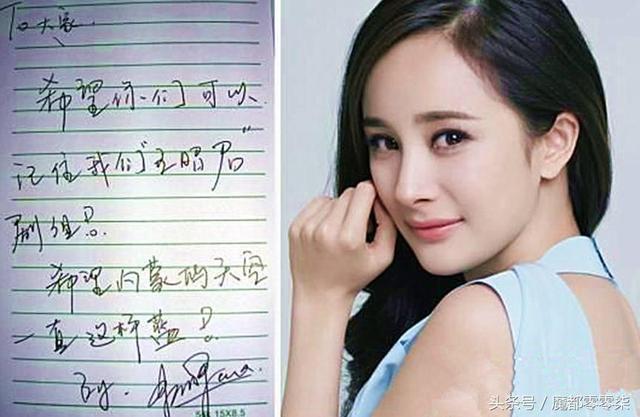 To大家
希望你们可以
记住我们"王昭君"
剧组!
希望内蒙的天空
一直这样蓝!
By.
5mm 15X8.5
头条号 / 魔都零零柒